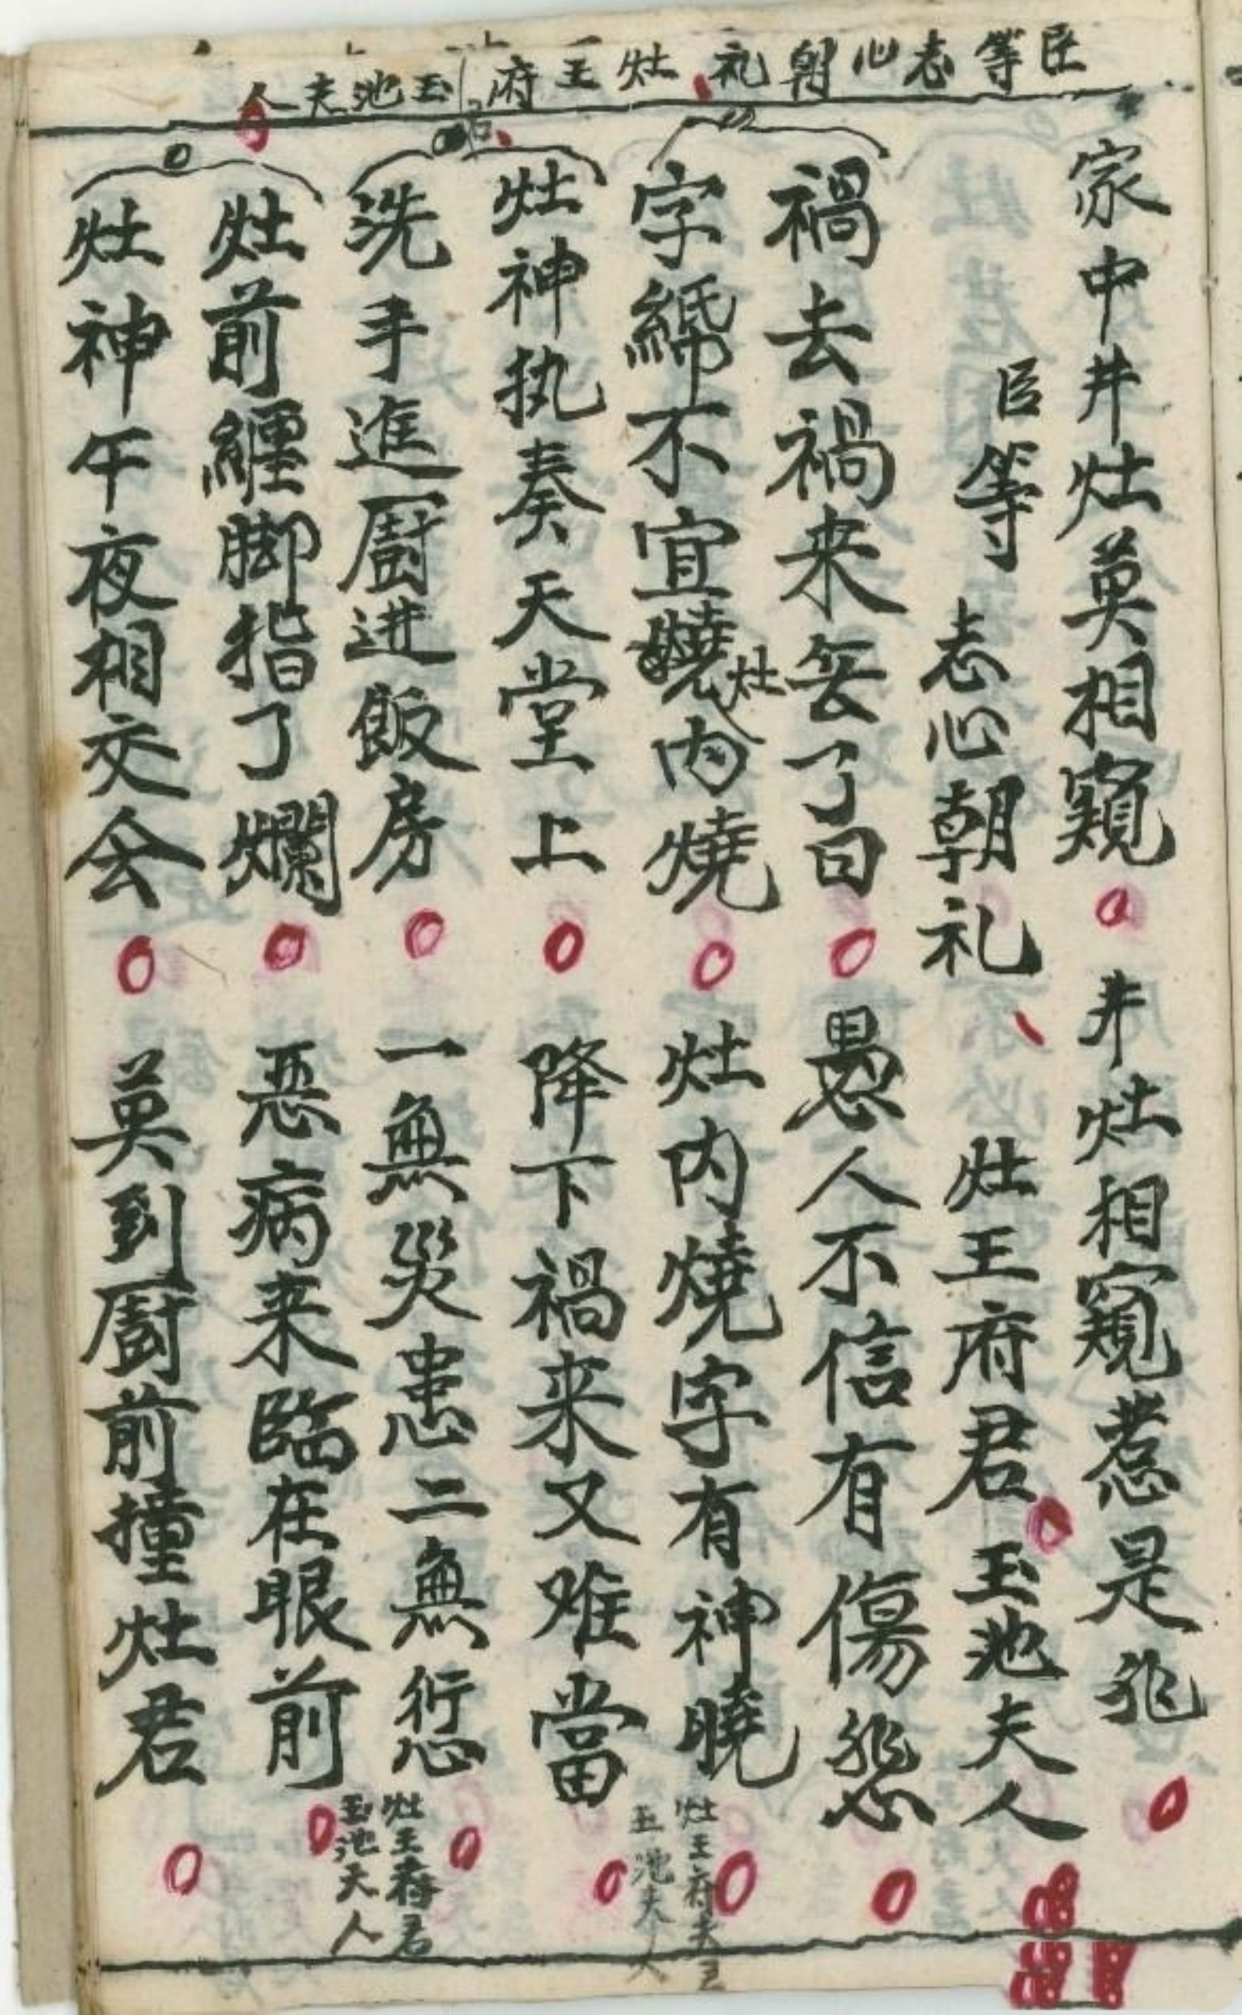 臣等志心朝礼灶王府玉池夫人
家中井灶莫相窺 井灶相窺惹是非
臣等 志心朝礼 灶王府君 玉池夫人
禍去禍来無了日 愚人不信有傷悲
字紙不宜灶内燒 灶内燒字有神曉
灶神执奏天堂上 降下禍来又难當
灶王府君
玉池夫人
洗手進厨进飯房 一無災患二無愆
灶前纏脚指了爛 恶病来臨在眼前
灶王府君
玉池夫人
灶神午夜相交会 莫到厨前撞灶君